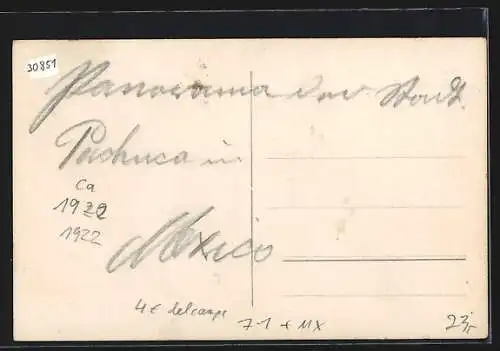 30851
Panorama der Stadt
Pachuca in
Ca
1922
1922
Mexico
4€ delcampe
71 + MX
23,-